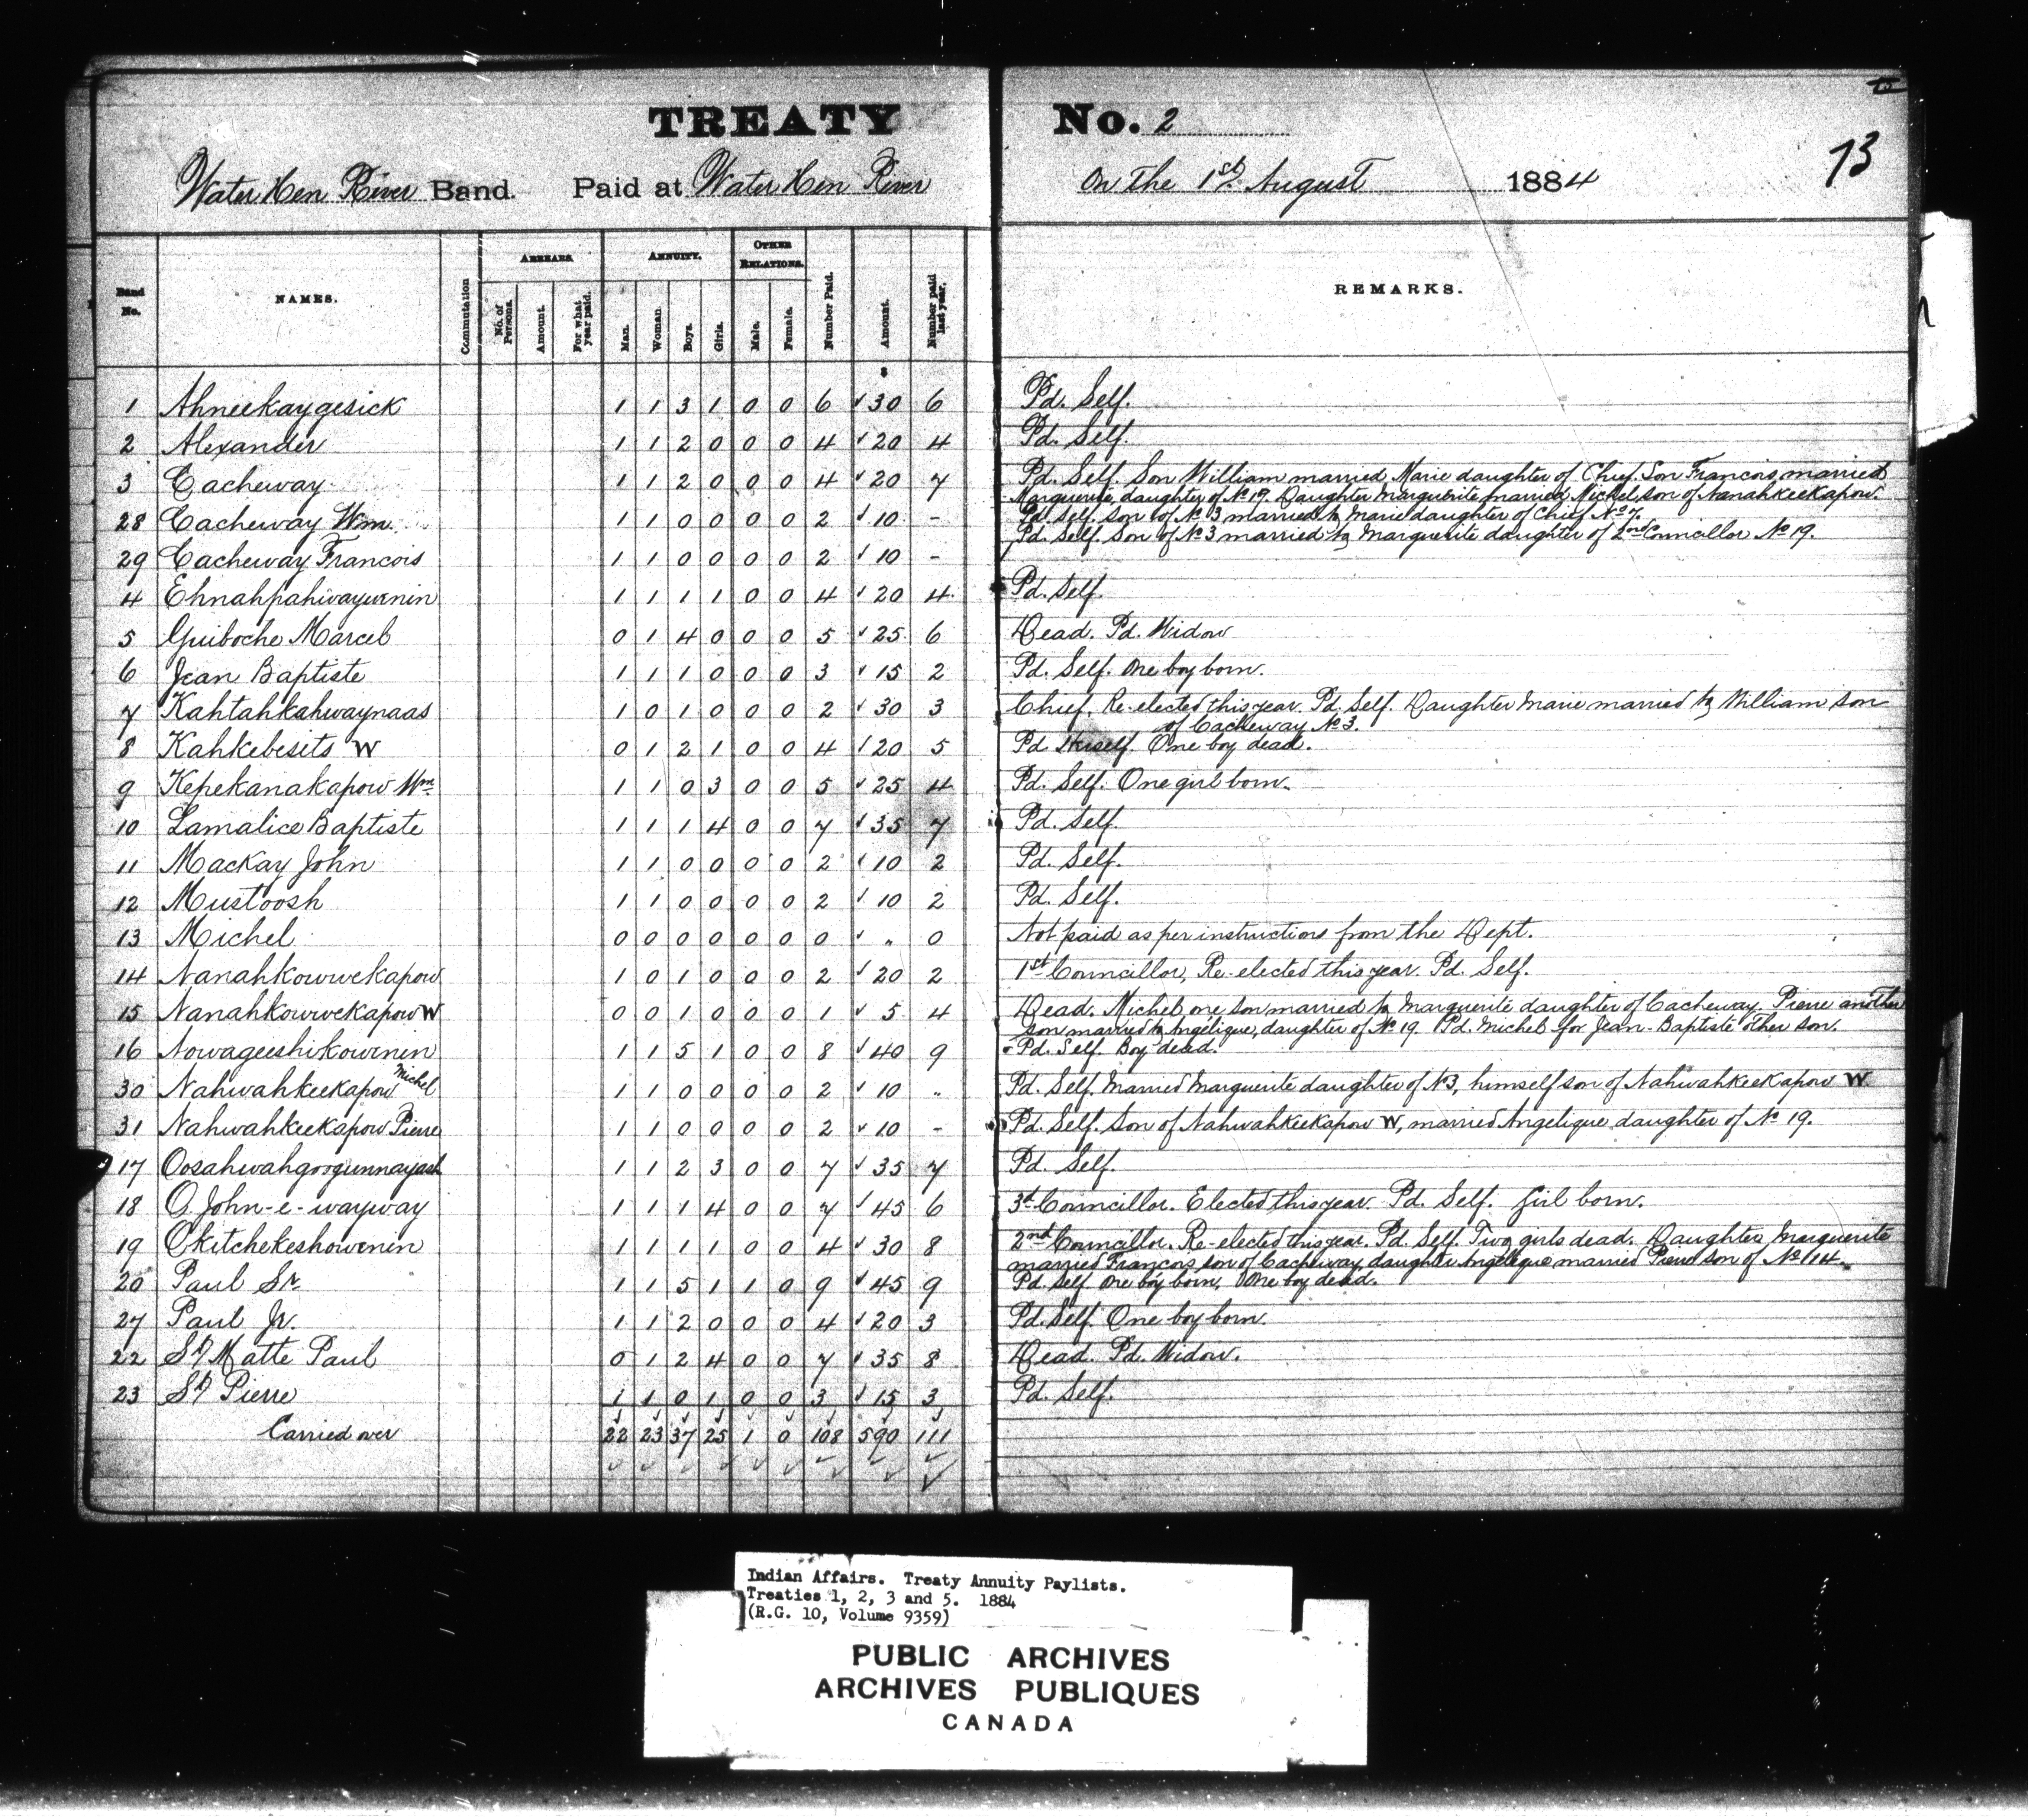 TREATY No. 2
73
Water Hen River Band. Paid at Water Hen River On the 1st August 1884
Band No. NAMES. Commutation ARREARS. No. of Persons. Amount. For what year paid. ANNUITY. Man. Woman Boys. Girls. OTHER RELATIONS. Male. Female. Number Paid. Amount. Number paid last year. REMARKS.
$
1 Ahneekaygesick 1 1 3 1 0 0 6 30 6 Pd. Self.
2 Alexander 1 1 2 0 0 0 4 20 4 Pd. Self.
3 Cacheway 1 1 2 0 0 0 4 20 7 Pd. Self. Son William married Marie daughter of Chief. Son Francois married
Marguerite, daughter of No 19. Daughter Marguerite married Michel son of Nanahkeekapow.
28 Cacheway Wm. 1 1 0 0 0 0 2 10 - Pd. Self. son of No 3 married to Marie daughter of Chief No 7.
29 Cacheway Francois 1 1 0 0 0 0 2 10 - Pd. Self. Son of No 3 married to Marguerite daughter of 2nd Councillor No 19.
4 Ehnahpahwaywenin 1 1 1 1 0 0 4 20 4 Pd. Self.
5 Guiboche Marcel 0 1 4 0 0 0 5 25 6 Dead. Pd. Widow
6 Jean Baptiste 1 1 1 0 0 0 3 15 2 Pd. Self. One boy born.
7 Kahtahkahwaynaas 1 0 1 0 0 0 2 30 3 Chief. Re-elected this year. Pd. Self. Daughter Marie married to William son
of Cacheway No 3.
8 Kahkebesits W 0 1 2 1 0 0 4 20 5 Pd. One boy dead.
9 Kepekanakapow Wm 1 1 0 3 0 0 5 25 4 Pd. Self. One girl born.
10 Lamalice Baptiste 1 1 1 4 0 0 7 35 7 Pd. Self.
11 MacKay John 1 1 0 0 0 0 2 10 2 Pd. Self.
12 Mustoosh 1 1 0 0 0 0 2 10 2 Pd. Self.
13 Michel 0 0 0 0 0 0 0 " 0 Not paid as per instructions from the Dept.
14 Nanahkowwekapow 1 0 1 0 0 0 2 20 2 1st Councillor, Re-elected this year. Pd. Self.
15 Nanahkowwekapow W 0 0 1 0 0 0 1 5 4 Dead. Michel, one son married to Marguerite daughter of Cacheway. Pierre another
son married to Angélique, daughter of No 19. Pd. Michel for Jean-Baptiste other son.
16 Nowageeshikowenin 1 1 5 1 0 0 8 40 9 Pd. Self. Boy dead.
30 Nahwahkeekapow Michel 1 1 0 0 0 0 2 10 " Pd. Self. Married Marguerite daughter of No 3, himself son of Nahwahkeekapow W
31 Nahwahkeekapow Pierre 1 1 0 0 0 0 2 10 - Pd. Self. Son of Nahwahkeekapow W, married Angelique daughter of No 19.
17 Oosahwahgoogunnayash 1 1 2 3 0 0 7 35 7 Pd. Self.
18 O John-e-wayway 1 1 1 4 0 0 7 45 6 3d Councillor. Elected this year. Pd. Self. Girl born.
19 Okitchekeshowenin 1 1 1 1 0 0 4 30 8 2nd Councillor. Re-elected this year. Pd. Self. Two girls dead. Daughter Marguerite
married Francois son of Cacheway, daughter Angelique married Pierre son of No 14.
20 Paul Sr. 1 1 5 1 1 0 9 45 9 Pd. Self. One boy born, One boy dead.
27 Paul Jr. 1 1 2 0 0 0 4 20 3 Pd. Self. One boy born.
22 St Matte Paul 0 1 2 4 0 0 7 35 8 Dead. Pd. Widow.
23 St Pierre 1 1 0 1 0 0 3 15 3 Pd. Self.
Carried over 22 23 37 25 1 0 108 590 111
Indian Affairs. Treaty Annuity Paylists.
Treaties 1, 2, 3 and 5. 1884
(R.G. 10, Volume 9359)
PUBLIC ARCHIVES
ARCHIVES PUBLIQUES
CANADA